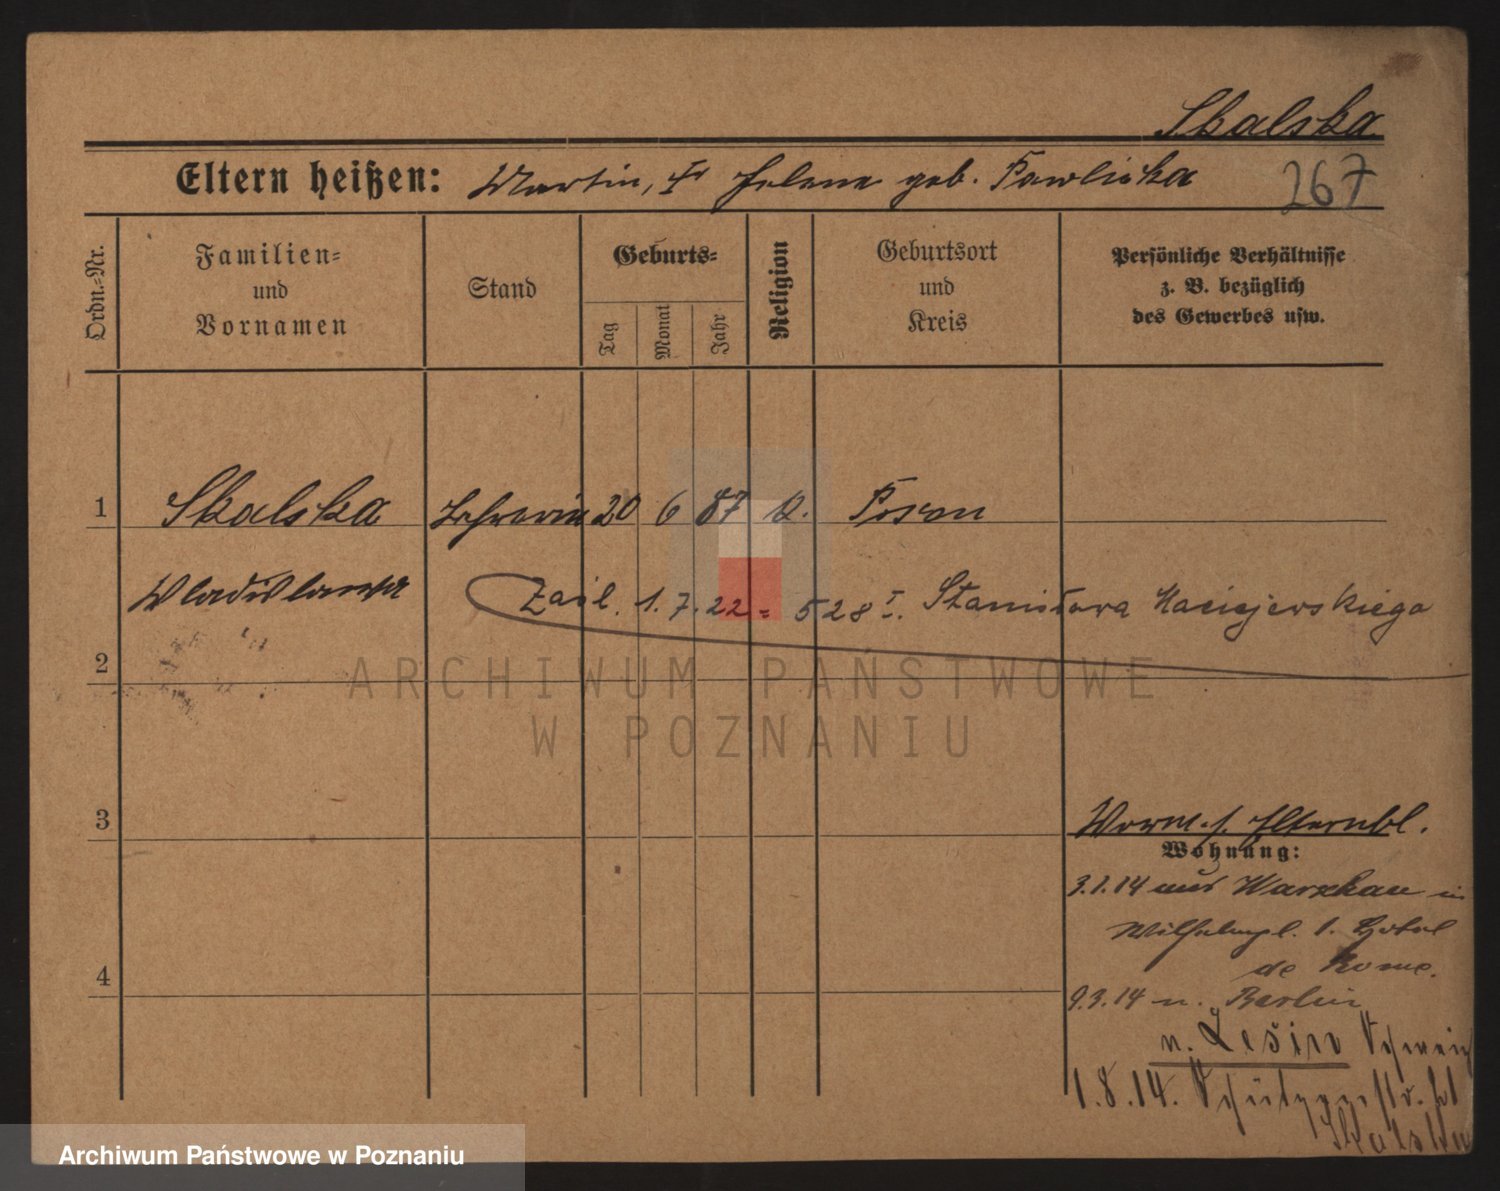 Skalska
Eltern heißen: Martin, u Helene geb. Pawlicka 267
Ordn.-Nr.
Familien- und Vornamen
Stand
Geburts-
Tag
Monat
Jahr
Religion
Geburtsort und Kreis
Persönliche Verhältnisse
z. B. bezüglich
des Gewerbes usw.
1 Skalska Lehrerin 20 6 87 k. Posen
Wladislawa
Zaśl. 1.7.22 = 528 I. Stanisława Maciejewskiego
2
3
Vorm. s. Elternbl.
Wohnung:
3.1.14 aus Warschau in
Wilhelmpl. 1. Hotel
de Rome.
9.3.14 n. Berlin
4
n. Lesin Schweiz
1.8.14. Schützenstr.
Skalska
ARCHIWUM PAŃSTWOWE
W POZNANIU
Archiwum Państwowe w Poznaniu